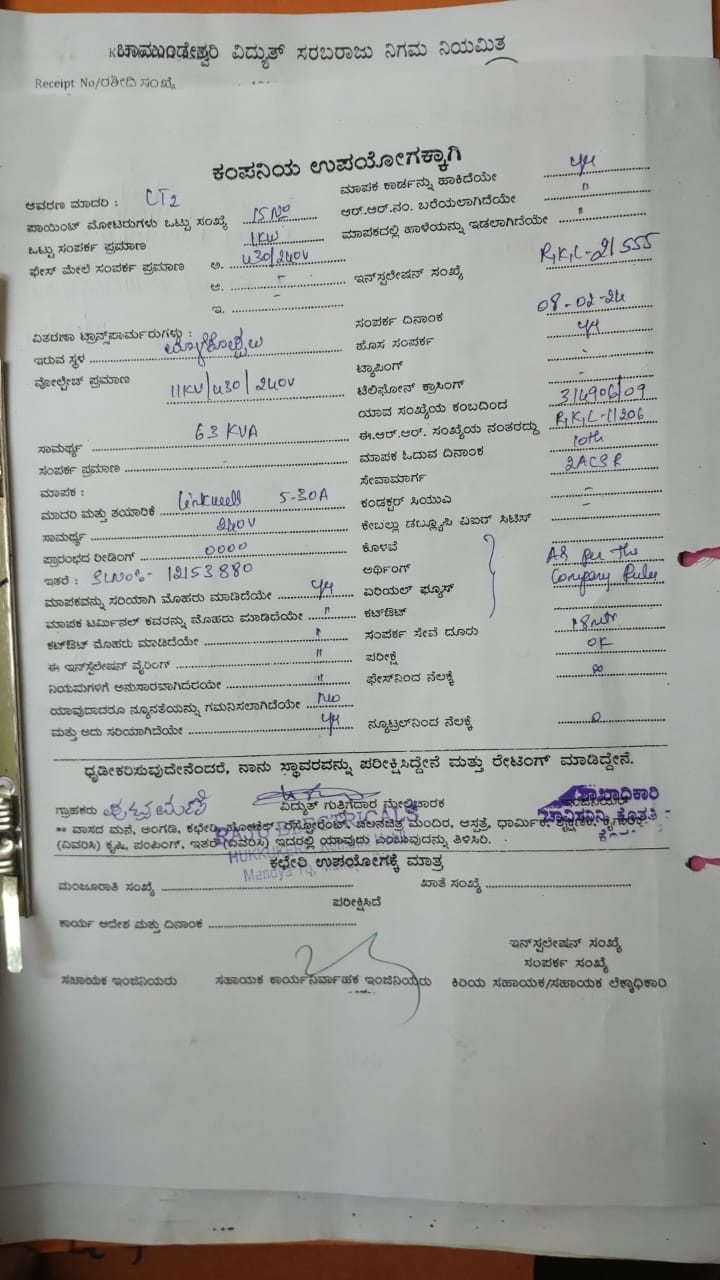 ಚಾಮುಂಡೇಶ್ವರಿ ವಿದ್ಯುತ್ ಸರಬರಾಜು ನಿಗಮ ನಿಯಮಿತ
Receipt No/ರಶೀದಿ ಸಂಖ್ಯೆ
ಕಂಪನಿಯ ಉಪಯೋಗಕ್ಕಾಗಿ
ಆವರಣ ಮಾದರಿ : CT2
ಪಾಯಿಂಟ್ ಮೋಟರುಗಳು ಒಟ್ಟು ಸಂಖ್ಯೆ 15 No
ಒಟ್ಟು ಸಂಪರ್ಕ ಪ್ರಮಾಣ 1KW
ಫೇಸ್ ಮೇಲೆ ಸಂಪರ್ಕ ಪ್ರಮಾಣ ಅ. 430/240V
ಆ. -
ಇ. -
ವಿತರಣಾ ಟ್ರಾನ್ಸ್‌ಪಾರ್ಮರುಗಳು :
ಇರುವ ಸ್ಥಳ
ವೋಲ್ಟೇಚ್ ಪ್ರಮಾಣ 11KV/430/240V
ಸಾಮರ್ಥ್ಯ 63 KVA
ಸಂಪರ್ಕ ಪ್ರಮಾಣ -
ಮಾಪಕ :
ಮಾದರಿ ಮತ್ತು ತಯಾರಿಕೆ Linkwell 5-30A
ಸಾಮರ್ಥ್ಯ 240V
ಪ್ರಾರಂಭದ ರೀಡಿಂಗ್ 0000
ಇತರೆ : SLNo:- 12153880
ಮಾಪಕವನ್ನು ಸರಿಯಾಗಿ ಮೊಹರು ಮಾಡಿದೆಯೇ yes
ಮಾಪಕ ಟರ್ಮಿನಲ್ ಕವರನ್ನು ಮೊಹರು ಮಾಡಿದೆಯೇ "
ಕಟ್‌ಔಟ್ ಮೊಹರು ಮಾಡಿದೆಯೇ "
ಈ ಇನ್‌ಸ್ಪಲೇಷನ್ ವೈರಿಂಗ್ "
ನಿಯಮಗಳಿಗೆ ಅನುಸಾರವಾಗಿದರಯೇ "
ಯಾವುದಾದರೂ ನ್ಯೂನತೆಯನ್ನು ಗಮನಿಸಲಾಗಿದೆಯೇ No
ಮತ್ತು ಅದು ಸರಿಯಾಗಿದೆಯೇ yes
ಮಾಪಕ ಕಾರ್ಡನ್ನು ಹಾಕಿದೆಯೇ yes
ಆರ್.ಆರ್.ನಂ. ಬರೆಯಲಾಗಿದೆಯೇ "
ಮಾಪಕದಲ್ಲಿ ಹಾಳೆಯನ್ನು ಇಡಲಾಗಿದೆಯೇ "
ಇನ್‌ಸ್ಪಲೇಷನ್ ಸಂಖ್ಯೆ R,K,L-21555
ಸಂಪರ್ಕ ದಿನಾಂಕ 08-02-24
ಹೊಸ ಸಂಪರ್ಕ yes
ಟ್ಯಾಪಿಂಗ್ -
ಟೆಲಿಫೋನ್ ಕ್ರಾಸಿಂಗ್ -
ಯಾವ ಸಂಖ್ಯೆಯ ಕಂಬದಿಂದ 314906/09
ಈ.ಆರ್.ಆರ್. ಸಂಖ್ಯೆಯ ನಂತರದ್ದು R,K,L-11206
ಮಾಪಕ ಓದುವ ದಿನಾಂಕ 10th
ಸೇವಾಮಾರ್ಗ 2ACSR
ಕಂಡಕ್ಟರ್ ಸಿಯುವಿ -
ಕೇಬಲ್ಲು ಡಬ್ಲ್ಯೂಪಿ ವಿಐರ್ ಸಿಟಿಸ್ -
ಕೊಳವೆ
ಅರ್ಥಿಂಗ್ AS Per The
ಏರಿಯಲ್ ಫ್ಯೂಸ್ Company Rules
ಕಟ್‌ಔಟ್
ಸಂಪರ್ಕ ಸೇವೆ ದೂರು 18mtr
ಪರೀಕ್ಷೆ OK
ಫೇಸ್‌ನಿಂದ ನೆಲಕ್ಕೆ ∞
ನ್ಯೂಟ್ರಲ್‌ನಿಂದ ನೆಲಕ್ಕೆ 0
ಧೃಡೀಕರಿಸುವುದೇನೆಂದರೆ, ನಾನು ಸ್ಥಾವರವನ್ನು ಪರೀಕ್ಷಿಸಿದ್ದೇನೆ ಮತ್ತು ರೇಟಿಂಗ್ ಮಾಡಿದ್ದೇನೆ.
ಗ್ರಾಹಕರು ಪುಟ್ಟಮಣಿ ವಿದ್ಯುತ್ ಗುತಿಗೆದಾರ ಮೇಲ್ವಿಚಾರಕ
ಶಾಖಾಧಿಕಾರಿ
** ವಾಸದ ಮನೆ, ಅಂಗಡಿ, ಕಛೇರಿ, ಹೋಟೆಲ್, ರೆಸ್ಟೋರೆಂಟ್, ಚಲನಚಿತ್ರ ಮಂದಿರ, ಆಸ್ಪತ್ರೆ, ಧಾರ್ಮಿಕ, ಶೈಕ್ಷಣಿಕ, ಕೈಗಾರಿಕೆ
(ವಿವರಿಸಿ) ಕೃಷಿ, ಪಂಪಿಂಗ್, ಇತರೆ (ವಿವರಿಸಿ) ಇದರಲ್ಲಿ ಯಾವುದು ಎಂಬುವುದನ್ನು ತಿಳಿಸಿರಿ.
RAJU ELECTRICALS
ಕಛೇರಿ ಉಪಯೋಗಕ್ಕೆ ಮಾತ್ರ
ಮಂಜೂರಾತಿ ಸಂಖ್ಯೆ
ಖಾತೆ ಸಂಖ್ಯೆ
ಪರೀಕ್ಷಿಸಿದೆ
ಕಾರ್ಯ ಆದೇಶ ಮತ್ತು ದಿನಾಂಕ
ಇನ್‌ಸ್ಪಲೇಷನ್ ಸಂಖ್ಯೆ
ಸಂಪರ್ಕ ಸಂಖ್ಯೆ
ಸಹಾಯಕ ಇಂಜಿನಿಯರು ಸಹಾಯಕ ಕಾರ್ಯನಿರ್ವಾಹಕ ಇಂಜಿನಿಯರು ಕಿರಿಯ ಸಹಾಯಕ/ಸಹಾಯಕ ಲೆಕ್ಕಾಧಿಕಾರಿ